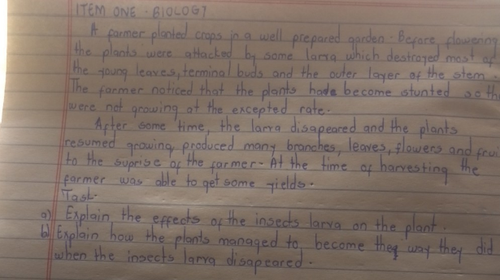 ITEM ONE - BIOLOGY
A farmer planted crops in a well prepared garden. Before flowering
the plants were attacked by some larva which destroyed most of
the young leaves, terminal buds and the outer layer of the stem.
The farmer noticed that the plants have become stunted so th
were not growing at the excepted rate.
After some time, the larva disapeared and the plants
resumed growing, produced many branches, leaves, flowers and frui
to the suprise of the farmer. At the time of harvesting the
farmer was able to get some yields.
Task
a) Explain the effects of the insects larva on the plant.
b) Explain how the plants managed to become they way they did
when the insects larva disapeared.